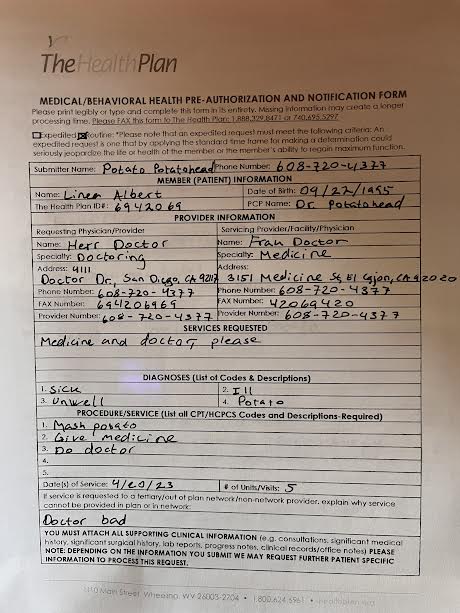 The Health Plan
MEDICAL/BEHAVIORAL HEALTH PRE-AUTHORIZATION AND NOTIFICATION FORM
Please print legibly or type and complete this form in its entirety. Missing information may create a longer
processing time. Please FAX this form to The Health Plan: 1.888.329.8471 or 740.695.5297
Expedited Routine: *Please note that an expedited request must meet the following criteria: An
expedited request is one that by applying the standard time frame for making a determination could
seriously jeopardize the life or health of the member or the member's ability to regain maximum function.
Submitter Name: Potato Potatohead Phone Number: 608-720-4377
MEMBER (PATIENT) INFORMATION
Name: Linen Albert Date of Birth: 09/22/1955
The Health Plan ID#: 6942069 PCP Name: Dr. Potatohead
PROVIDER INFORMATION
Requesting Physician/Provider Servicing Provider/Facility/Physician
Name: Herr Doctor Name: Frau Doctor
Specialty: Doctoring Specialty: Medicine
Address: 4111 Address:
Doctor Dr, San Diego, CA 92117 3151 Medicine St, El Cajon, CA 92020
Phone Number: 608-720-4377 Phone Number: 608-720-4377
FAX Number: 694206969 FAX Number: 42069420
Provider Number: 608-720-4377 Provider Number: 608-720-4377
SERVICES REQUESTED
Medicine and doctor, please
DIAGNOSES (List of Codes & Descriptions)
1. Sick 2. Ill
3. Unwell 4. Potato
PROCEDURE/SERVICE (List all CPT/HCPCS Codes and Descriptions-Required)
1. Mash potato
2. Give medicine
3. Do doctor
4.
5.
Date(s) of Service: 4/20/23 # of Units/Visits: 5
If service is requested to a tertiary/out of plan network/non-network provider, explain why service
cannot be provided in plan or in network:
Doctor bad
YOU MUST ATTACH ALL SUPPORTING CLINICAL INFORMATION (e.g. consultations, significant medical
history, significant surgical history, lab reports, progress notes, clinical records/office notes) PLEASE
NOTE: DEPENDING ON THE INFORMATION YOU SUBMIT WE MAY REQUEST FURTHER PATIENT SPECIFIC
INFORMATION TO PROCESS THIS REQUEST.
1110 Main Street Wheeling, WV 26003-2704 • 1.800.624.6961 • healthplan.org